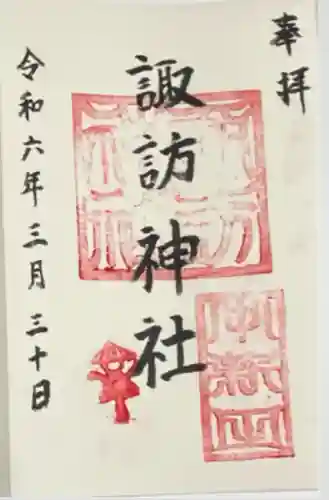 奉拝
諏訪神社
令和六年三月三十日